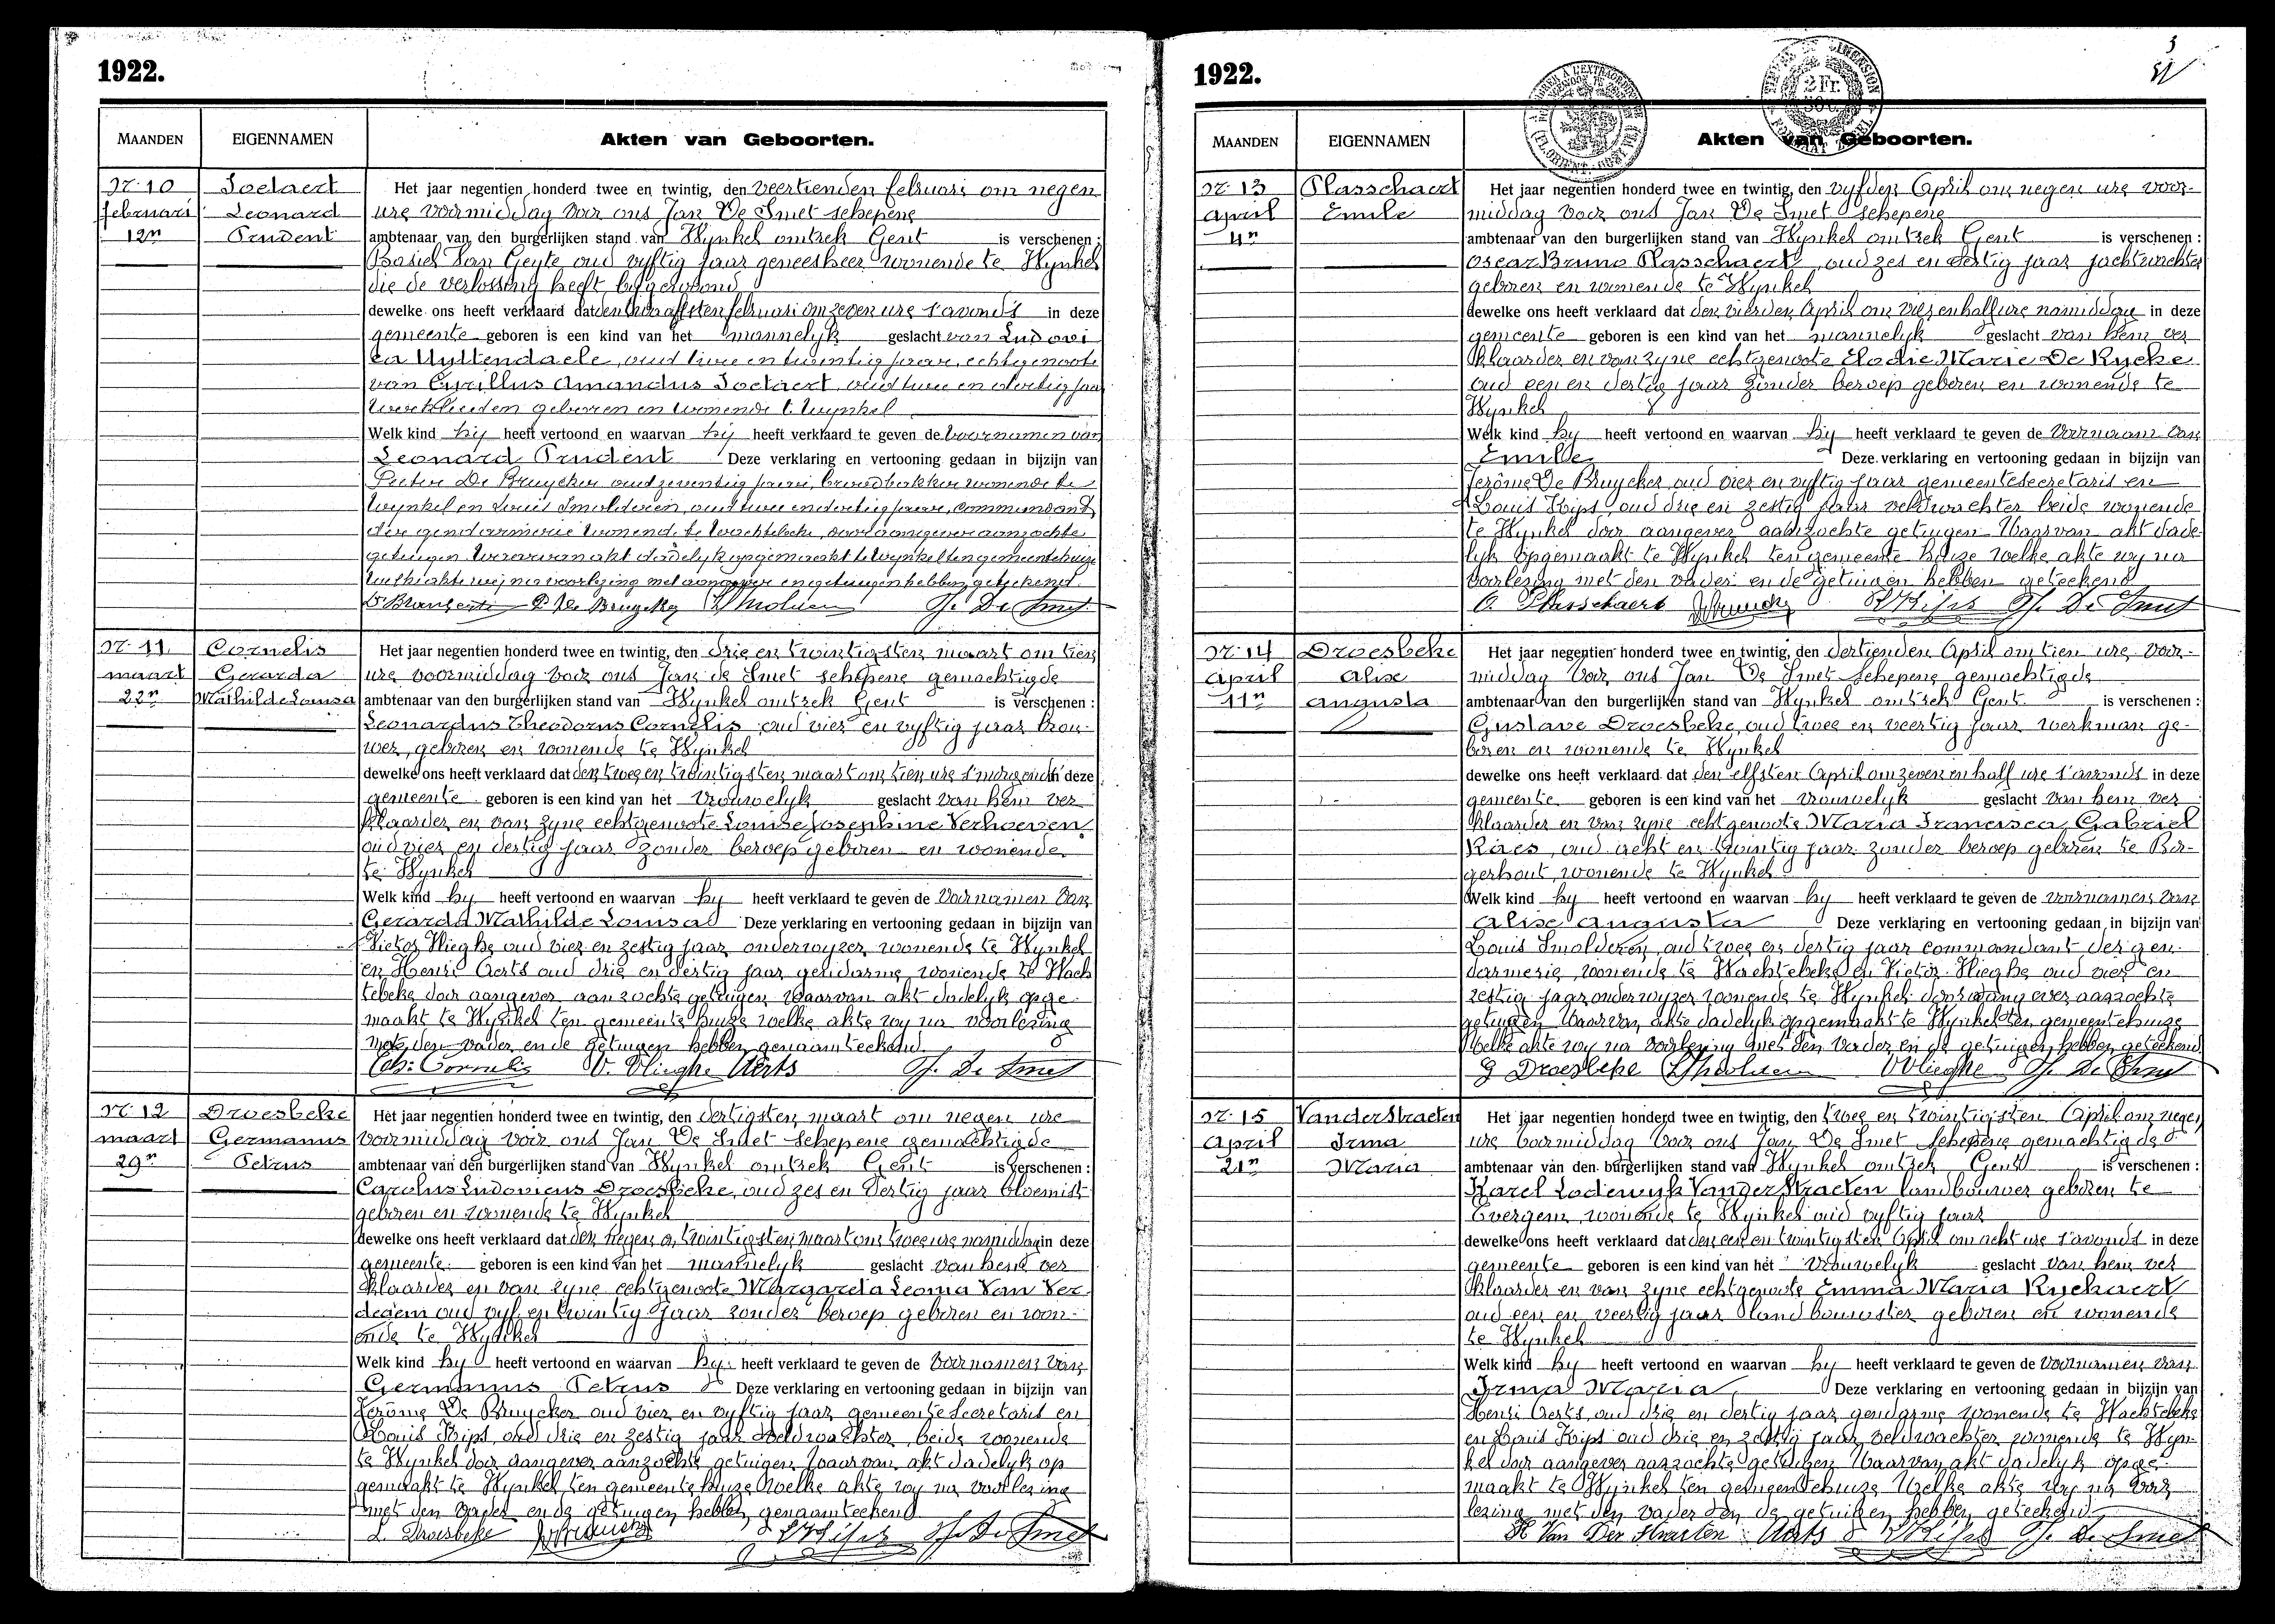 1922.
MAANDEN EIGENNAMEN Akten van Geboorten.
Nr. 10 Soetaert Het jaar negentien honderd twee en twintig, den veertienden februari om negen
februari Leonard ure voormiddag voor ons Jan De Smet schepene
12n Prudent ambtenaar van den burgerlijken stand van Wynkel omtrek Gent is verschenen :
Basiel Van Geyte oud vyftig jaar geneesheer wonende te Wynkel
die de verlossing heeft bygewoond
dewelke ons heeft verklaard dat den twaalfsten februari om zeven ure s'avonds in deze
gemeente geboren is een kind van het mannelyk geslacht van Ludovi
ca Uyttendaele, oud twee en twintig jaar, echtgenoote
van Cyrillus Amandus Soetaert, oud twee en dertig jaar
werklieden geboren en wonende te Wynkel
Welk kind hij heeft vertoond en waarvan hij heeft verklaard te geven de voornamen van
Leonard Prudent Deze verklaring en vertooning gedaan in bijzijn van
Pieter De Bruycker oud zeventig jaar, broodbakker wonende te
Wynkel en Louis Smolderen, oud twee en dertig jaar, commandant
der gendarmerie wonende te Wachtebeke, door aangever aanzochte
getuigen waarvan akt dadelyk opgemaakt te Wynkel ten gemeentehuize
welke akte wij na voorlezing met aangever en getuigen hebben geteekend.
P. De Bruycker L. Smolderen J. De Smet
Nr. 11 Cornelis Het jaar negentien honderd twee en twintig, den drie en twintigsten maart om tien
maart Gerarda ure voormiddag voor ons Jan de Smet schepene gemachtigde
22n Mathilde Louisa ambtenaar van den burgerlijken stand van Wynkel omtrek Gent is verschenen :
Leonardus Theodorus Cornelis oud vier en vyftig jaar brou-
wer, geboren en wonende te Wynkel
dewelke ons heeft verklaard dat den twee en twintigsten maart om tien ure s'morgends in deze
gemeente geboren is een kind van het vrouwelyk geslacht van hem ver
klaarder en van zyne echtgenoote Louise Josephine Verhoeven
oud vier en dertig jaar zonder beroep geboren en wonende
te Wynkel
Welk kind hy heeft vertoond en waarvan hy heeft verklaard te geven de voornamen van
Gerarda Mathilde Louisa Deze verklaring en vertooning gedaan in bijzijn van
Victor Vlieghe oud vier en zestig jaar onderwyzer, wonende te Wynkel
en Henri Aerts oud drie en dertig jaar gendarme, wonende te Wach
tebeke door aangever aanzochte getuigen waarvan akt dadelyk opge-
maakt te Wynkel ten gemeente huize welke akte wy na voorlezing
met den vader en de getuigen hebben genaamteekend
Cornelis V. Vlieghe Aerts J. De Smet
Nr. 12 Droesbeke Het jaar negentien honderd twee en twintig, den dertigsten maart om negen ure
maart Germanus voormiddag voor ons Jan De Smet schepene gemachtigde
29n Petrus ambtenaar van den burgerlijken stand van Wynkel omtrek Gent is verschenen :
Carolus Ludovicus Droesbeke, oud zes en dertig jaar bloemist
geboren en wonende te Wynkel
dewelke ons heeft verklaard dat den negen en twintigsten maart om twee ure namiddag in deze
gemeente geboren is een kind van het mannelyk geslacht van hem ver
klaarder en van zyne echtgenoote Margareta Leonia Van Ver-
degem oud vyf en twintig jaar zonder beroep geboren en won-
ende te Wynkel
Welk kind hy heeft vertoond en waarvan hy heeft verklaard te geven de voornamen van
Germanus Petrus Deze verklaring en vertooning gedaan in bijzijn van
Jerôme De Bruycker oud vier en vyftig jaar gemeente Secretaris en
Louis Kips, oud drie en zestig jaar veldwachter, beide wonende
te Wynkel door aangever aanzochte getuigen waarvan akt dadelyk op
gemaakt te Wynkel ten gemeente huize welke akte wy na voorlezing
met den vader en de getuigen hebben genaamteekend
L. Droesbeke L Kips J. De Smet
1922.
3
MAANDEN EIGENNAMEN Akten van Geboorten.
Nr. 13 Plasschaert Het jaar negentien honderd twee en twintig, den vyfden April om negen ure voor-
April Emile middag voor ons Jan De Smet schepene
4n ambtenaar van den burgerlijken stand van Wynkel omtrek Gent is verschenen :
Oscar Bruno Plasschaert, oud zes en dertig jaar jachtwachter
geboren en wonende te Wynkel
dewelke ons heeft verklaard dat den vierden April om vier en half ure namiddag in deze
gemeente geboren is een kind van het mannelyk geslacht van hem ver
klaarder en van zyne echtgenoote Elodie Marie De Rycke
oud een en dertig jaar zonder beroep geboren en wonende te
Wynkel
Welk kind hy heeft vertoond en waarvan hij heeft verklaard te geven de voornaam van
Emile Deze verklaring en vertooning gedaan in bijzijn van
Jerôme De Bruycker, oud vier en vyftig jaar gemeentesecretaris en
Louis Kips, oud drie en zestig jaar veldwachter beide wonende
te Wynkel door aangever aanzochte getuigen waarvan akt dade-
lyk opgemaakt te Wynkel ten gemeente huize welke akte wy na
voorlezing met den vader en de getuigen hebben geteekend
O. Plasschaert L Kips J. De Smet
Nr. 14 Droesbeke Het jaar negentien honderd twee en twintig, den dertienden April om tien ure voor-
April Alix middag voor ons Jan De Smet schepene gemachtigde
11n Augusta ambtenaar van den burgerlijken stand van Wynkel omtrek Gent is verschenen :
Gustave Droesbeke, oud twee en veertig jaar werkman ge-
boren en wonende te Wynkel
dewelke ons heeft verklaard dat den elfsten April om zeven en half ure s'avonds in deze
gemeente geboren is een kind van het vrouwelyk geslacht van hem ver
klaarder en van zyne echtgenoote Maria Francisca Gabriel
Raes, oud acht en twintig jaar zonder beroep geboren te Bor-
gerhout, wonende te Wynkel
Welk kind hy heeft vertoond en waarvan hy heeft verklaard te geven de voornamen van
Alix Augusta Deze verklaring en vertooning gedaan in bijzijn van
Louis Smolderen, oud twee en dertig jaar commandant der gen-
darmerie, wonende te Wachtebeke en Victor Vlieghe oud vier en
zestig jaar onderwyzer wonende te Wynkel door aangever aanzochte
getuigen waarvan akte dadelyk opgemaakt te Wynkel ten gemeentehuize
welke akte wy na voorlezing met den vader en de getuigen hebben geteekend
G Droesbeke L Smolderen V Vlieghe J. De Smet
Nr. 15 VanderStraeten Het jaar negentien honderd twee en twintig, den twee en twintigsten April om negen
April Irma ure voormiddag voor ons Jan De Smet schepene gemachtigde
21n Maria ambtenaar van den burgerlijken stand van Wynkel omtrek Gent is verschenen :
Karel Lodewyk VanderStraeten landbouwer geboren te
Evergem, wonende te Wynkel oud vyftig jaar
dewelke ons heeft verklaard dat den een en twintigsten April om acht ure s'avonds in deze
gemeente geboren is een kind van het vrouwelyk geslacht van hem ver
klaarder en van zyne echtgenoote Emma Maria Ryckaert
oud een en veertig jaar landbouwster geboren en wonende
te Wynkel
Welk kind hy heeft vertoond en waarvan hy heeft verklaard te geven de voornamen van
Irma Maria Deze verklaring en vertooning gedaan in bijzijn van
Henri Aerts, oud drie en dertig jaar gendarme wonende te Wachtebeke
en Louis Kips oud drie en zestig jaar, veldwachter wonende te Wyn-
kel door aangever aanzochte getuigen waarvan akt dadelyk opge-
maakt te Wynkel ten gemeentehuize welke akte wy na voor
lezing met den vader en de getuigen hebben geteekend
K Van Der Straeten Aerts L Kips J. De Smet